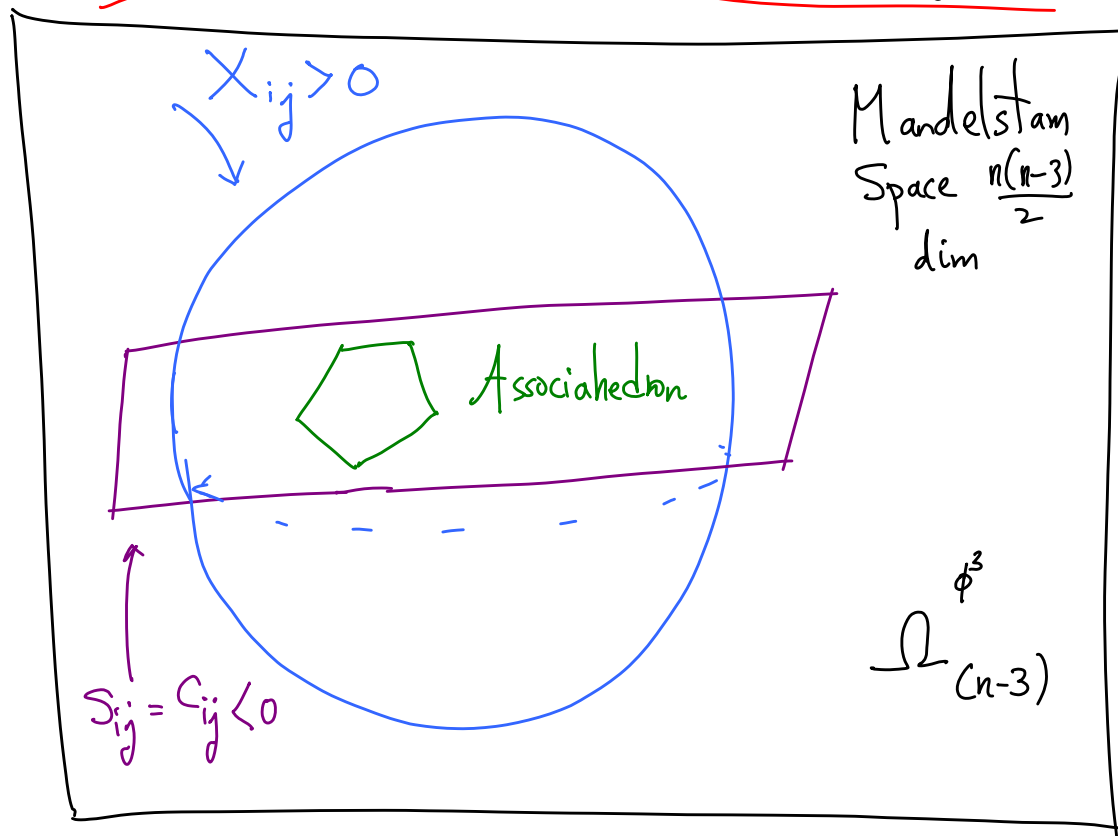 X_{ij} > 0
Mandelstam
Space n(n-3)/2
dim
Associahedron
S_{ij} = C_{ij} < 0
Ω_{(n-3)}^{ϕ^3}